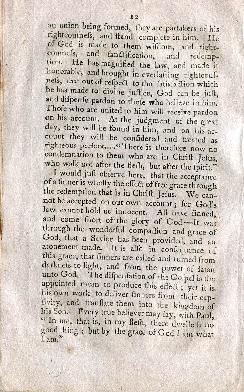 12
an union being formed, they are partakers of his
righteousness, and stand complete in him. He
of God is made to them wisdom, and righte-
ousness, and sanctification, and redemp-
tion. He has magnified the law, and made it
honorable, and brought in everlasting righteous-
ness, and out of respect to the satisfaction which
he has made to divine justice, God can be just
and dispense pardon to those who believe in him.
Those who are united to him will receive pardon
on his account. At the judgment of the great
day, they will be found in him, and on his ac-
count they will be considered and treated as
righteous persons. "There is therefore now no
condemnation to them who are in Christ Jesus,
who walk not after the flesh, but after the spirit."
I would just observe here, that the acceptance
of a sinner is wholly the effect of free grace through
the redemption that is in Christ Jesus. We can-
not be accepted on our own account; for God's
law cannot hold us innocent. All have sinned,
and come short of the glory of God—It was
through the wonderful compassion and grace of
God, that a Savior has been provided, and an
atonement made. It is also in consequence of
this grace, that sinners are called and turned from
darkness to light, and from the power of satan
unto God. The dispensation of the Gospel is the
appointed mean to produce this effect; yet it is
his own work to deliver sinners from their cap-
tivity, and translate them into the kingdom of
his Son. Every true believer may say, with Paul,
"In me, that is, in my flesh, there dwelleth no
good thing; but by the grace of God I am what
I am."